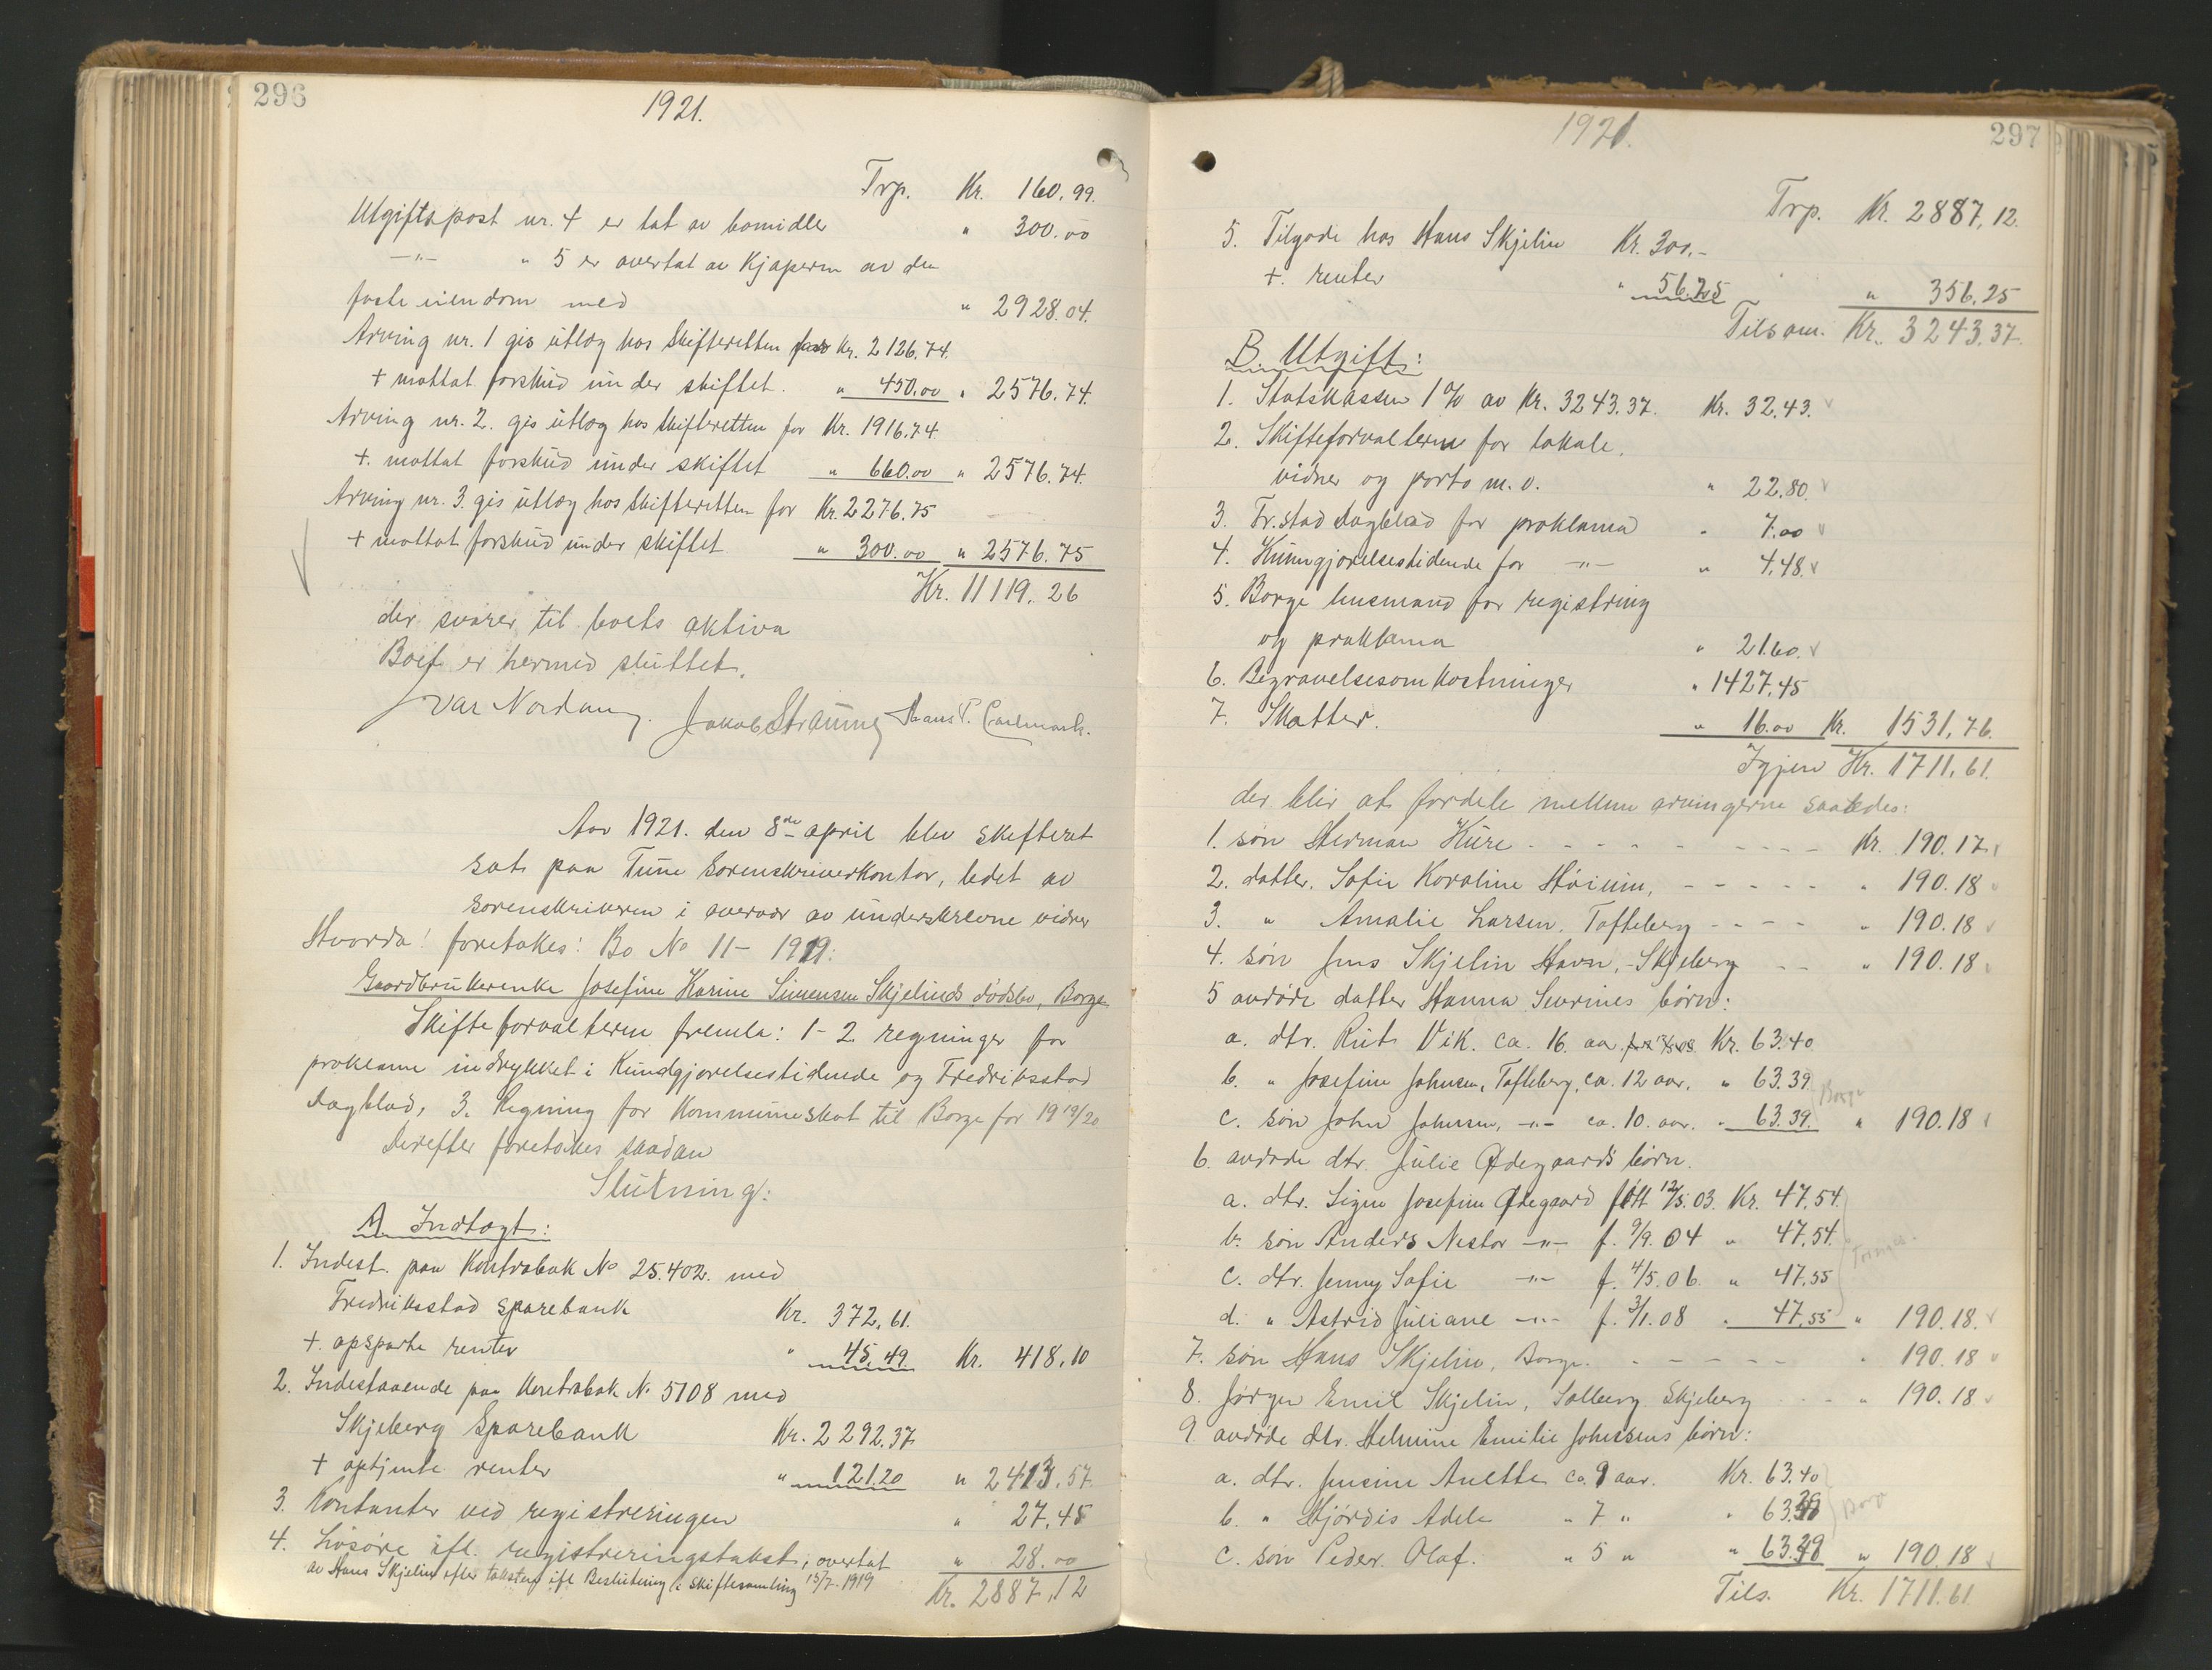 296
1921.
Trp. Kr. 160,99.
Utgiftspost nr. 4 er tat av bomidler " 300.00
—"— " 5 er overtat av Kjøperen av den
faste eiendom med " 2928.04.
Arving nr. 1 gis utlæg hos Skifteretten for Kr. 2126.74.
+ mottat forskud under skiftet. " 450.00 " 2576.74.
Arving nr. 2. gis utlæg hos Skifteretten for Kr. 1916.74
+ mottat forskud under skiftet " 660.00 " 2576.74.
Arving nr. 3. gis utlæg hos Skifteretten for Kr. 2276.75
+ mottat forskud under skiftet " 300.00 " 2576.75
Kr. 11119.26
der svarer til boets aktiva
Boet er hermed sluttet.
Ivar Nordang. Jakob Straume Hans P. Carlmark.
Aar 1921. den 8de april blev skifteret
sat paa Tune Sorenskriverkontor, ledet av
sorenskriveren i overvær av underskrevne vidner
Hvorda! foretokes: Bo No 11 - 1919:
Gaardbrukerenke Josefine Karine Simensen Skjelinds dødsbo, Borge
Skifteforvalteren fremla: 1-2 regninger for
proklama indrykket i Kundgjørelsestidende og Fredriksstad
Dagblad, 3. Regning for Kommuneskat til Borge for 1919/20
Derefter foretokes saadan
Slutning:
A. Indtægt:
1. Indest. paa Kontrabok No 25.402. med
Fredriksstad sparebank Kr. 372,61.
+ opsparte renter " 45,49 Kr. 418,10
2. Indestaaende paa Kontrabok No 5708 med
Skjeberg Sparebank Kr. 2292.37
+ optjente renter " 121.20 " 2413,57
3. Kontanter ved registreringen " 27.45
4. Løsøre ifl. registreringstakst, overtat " 28.00
av Hans Skjelin efter taksten ifl Beslutning i Skiftesamling 15/7 1919
Kr. 2887,12
297
1921.
Trp. Kr. 2887,12.
5. Tilgode hos Hans Skjelin Kr. 300.-
+ renter " 56.25 " 356,25
Tilsam. Kr. 3243.37.
B. Utgift:
1. Statskassen 1% av Kr. 3243.37. Kr. 32.43.
2. Skifteforvalteren for lokale,
vidner og porto m. v. " 22.80.
3. Fr.stad Dagblad for proklama " 7.00
4. Kunngjørelsestidende for —"— " 4,48.
5. Borge lensmand for registring
og proklama " 21.60.
6. Begravelsesomkostninger " 1427,45
7. Skatter. " 16.00 Kr. 1531,76.
Igjen Kr. 1711,61.
der blir at fordele mellem arvingerne saaledes:
1. søn Herman Hure - - - - Kr. 190.17
2. datter. Sofie Karoline Høium, - - - - " 190.18
3. " Amalie Larsen, Tofteberg - - - - " 190.18
4. søn Jens Skjelin Havn, - Skjeberg - - " 190.18
5 avdøde datter Hanna Severines børn:
a. dtr. Rut Vik. ca. 16. aar Kr. 63.40
b. " Josefine Johnsen, Tofteberg, ca. 12 aar. " 63.39 Borge
c. søn John Johnsen, —"— ca. 10. aar. " 63.39. " 190.18
6. avdøde dtr. Julie Ødegaards børn.
a. dtr. Signe Josefine Ødegaard født 12/5.03. Kr. 47.54
b. søn Anders Nestor —"— f. 9/9.04 " 47.54.
c. dtr. Jenny Sofie —"— f. 4/5.06. " 47.55
d. " Astrid Juliane —"— f. 3/1.08 " 47.55 " 190.18.
7. søn Hans Skjelin, Borge. - - - - " 190.18
8. Jørgen Emil Skjelin, Solberg Skjeberg - - " 190.18
9. avdøde dtr. Helmine Emilie Johnsens børn:
a. dtr. Jensine Anette ca. 9 aar. Kr. 63.40
b. " Hjørdis Adele " 7 " " 63.39 Borge
c. søn Peder Olaf. " 5 " " 63.39 " 190.18
Tils. Kr. 1711.61